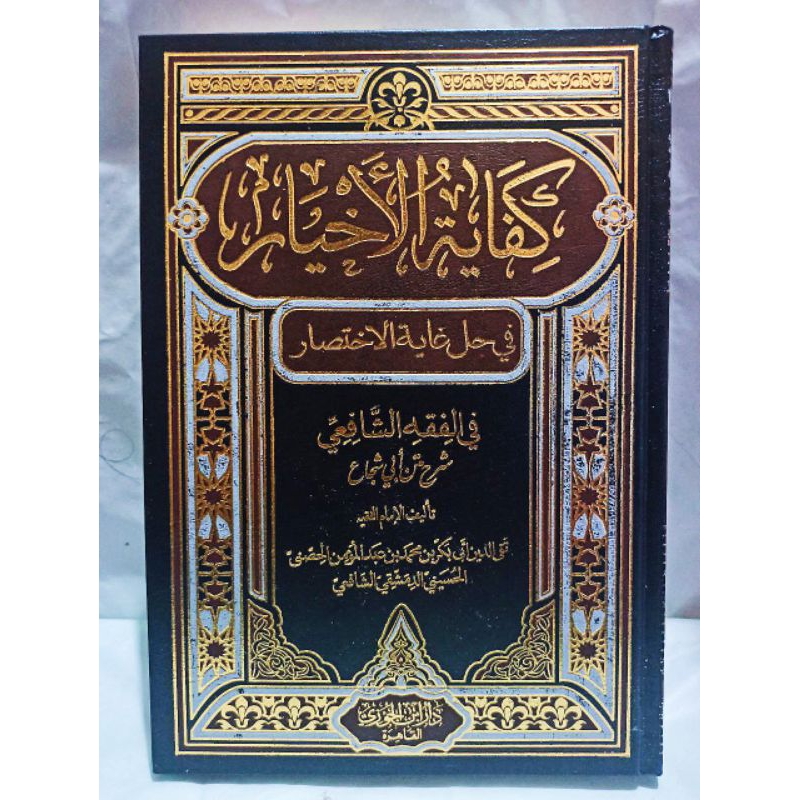 كِفَايَةُ الأَخْيَارِ
في حل غاية الاختصار
في الفِقهِ الشَّافِعِيّ
شرح متن أبي شجاع
تأليف الإمام الفقيه
تقي الدين أبي بكر بن محمد بن عبد المؤمن الحصني
الحسيني الدمشقي الشافعي
دار ابن الجوزي
القاهرة